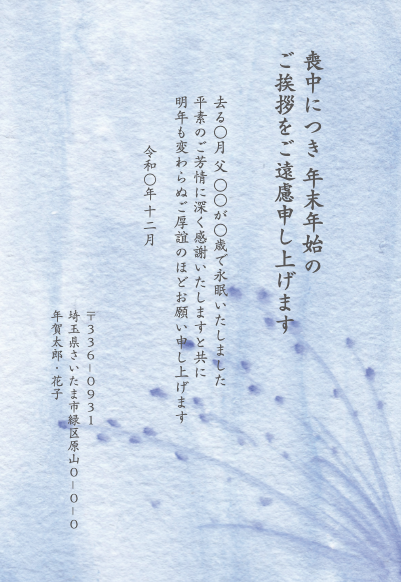 喪中につき年末年始の
ご挨拶をご遠慮申し上げます
去る〇月 父 〇〇が〇歳で永眠いたしました
平素のご芳情に深く感謝いたしますと共に
明年も変わらぬご厚誼のほどお願い申し上げます
令和〇年 十二月
〒336-0931
埼玉県さいたま市緑区原山0-0-0
年賀太郎・花子